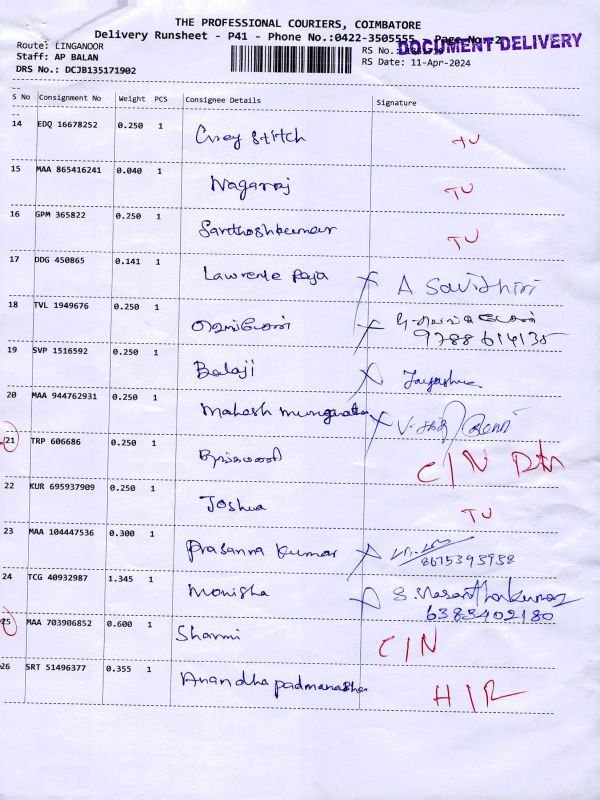 THE PROFESSIONAL COURIERS, COIMBATORE
Delivery Runsheet - P41 - Phone No.:0422-3505555 Page No. 2
DOCUMENT DELIVERY
Route: LINGANOOR
RS No.:
Staff: AP BALAN
RS Date: 11-Apr-2024
DRS No.: DCJB135171902
S No Consignment No Weight PCS Consignee Details Signature
14 EDQ 16678252 0.250 1 stitch TU
15 MAA 865416241 0.040 1 Nagaraj TU
16 GPM 365822 0.250 1 Santhoshkumar TU
17 DDG 450865 0.141 1 Lawrence Raja A Savithiri
18 TVL 1949676 0.250 1
9788614135
19 SVP 1516592 0.250 1 Balaji Jayashree
20 MAA 944762931 0.250 1 Mahesh
21 TRP 606686 0.250 1 C/N
22 KUR 695937909 0.250 1 Joshua TU
23 MAA 104447536 0.300 1 Prasanna Kumar
8675393938
24 TCG 40932987 1.345 1 Monisha S.
6383402180
25 MAA 703906852 0.600 1 Sharmi C/N
26 SRT 51496377 0.355 1 Anandha padmanabhan